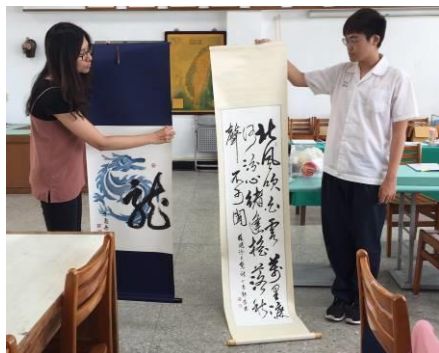 龍
北風吹白雲萬里渡
河汾心緒逢搖落秋
聲不可聞